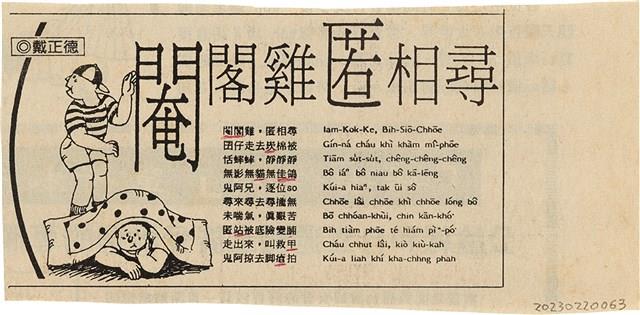 ◎戴正德
閹閣雞匿相尋
閹閣雞，匿相尋
囝仔走去崁棉被
恬蟀蟀，靜靜靜
無影無貓無佳鴿
鬼阿兄，逐位so
尋來尋去尋攏無
未喘氣，眞艱苦
匿站被底險變脯
走出來，叫救甲
鬼阿掠去脚𩩍拍
Iam-Kok-Ke, Bih-Siō-Chhōe
Gín-ná cháu khì khàm mî-phōe
Tiām sut-sut, chēng-chēng-chēng
Bô iáⁿ bô niau bô kā-lēng
Kúi-a hiaⁿ, tak ūi sô
Chhōe lâi chhōe khì chhōe lóng bô
Bō chhóan-khùi, chin kān-khó
Bih tiàm phōe té hiám pìⁿ-pó
Cháu chhut lâi, kiò kiù-kah
Kúi-a liah khì kha-chhng phah
20230220063